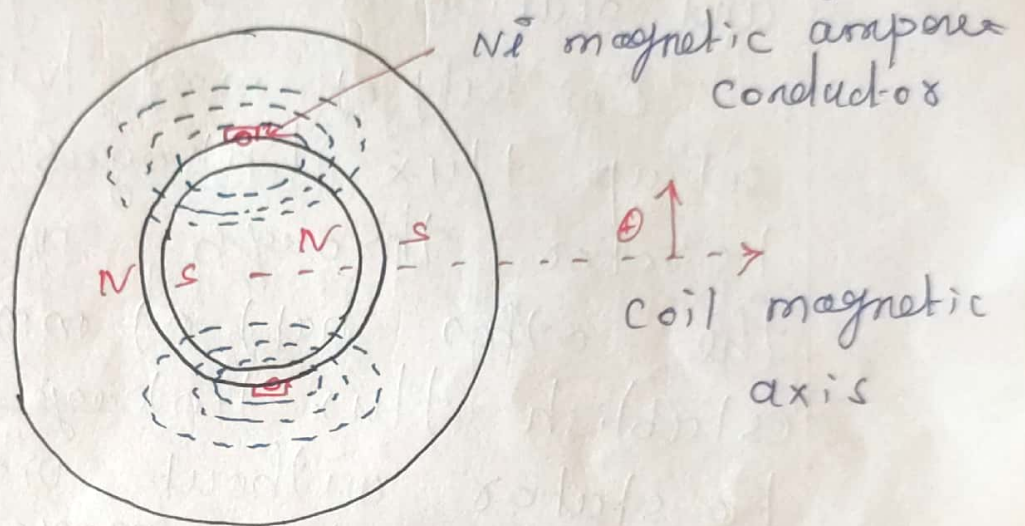 Ni magnetic ampere
conductor
N S N S θ
coil magnetic
axis